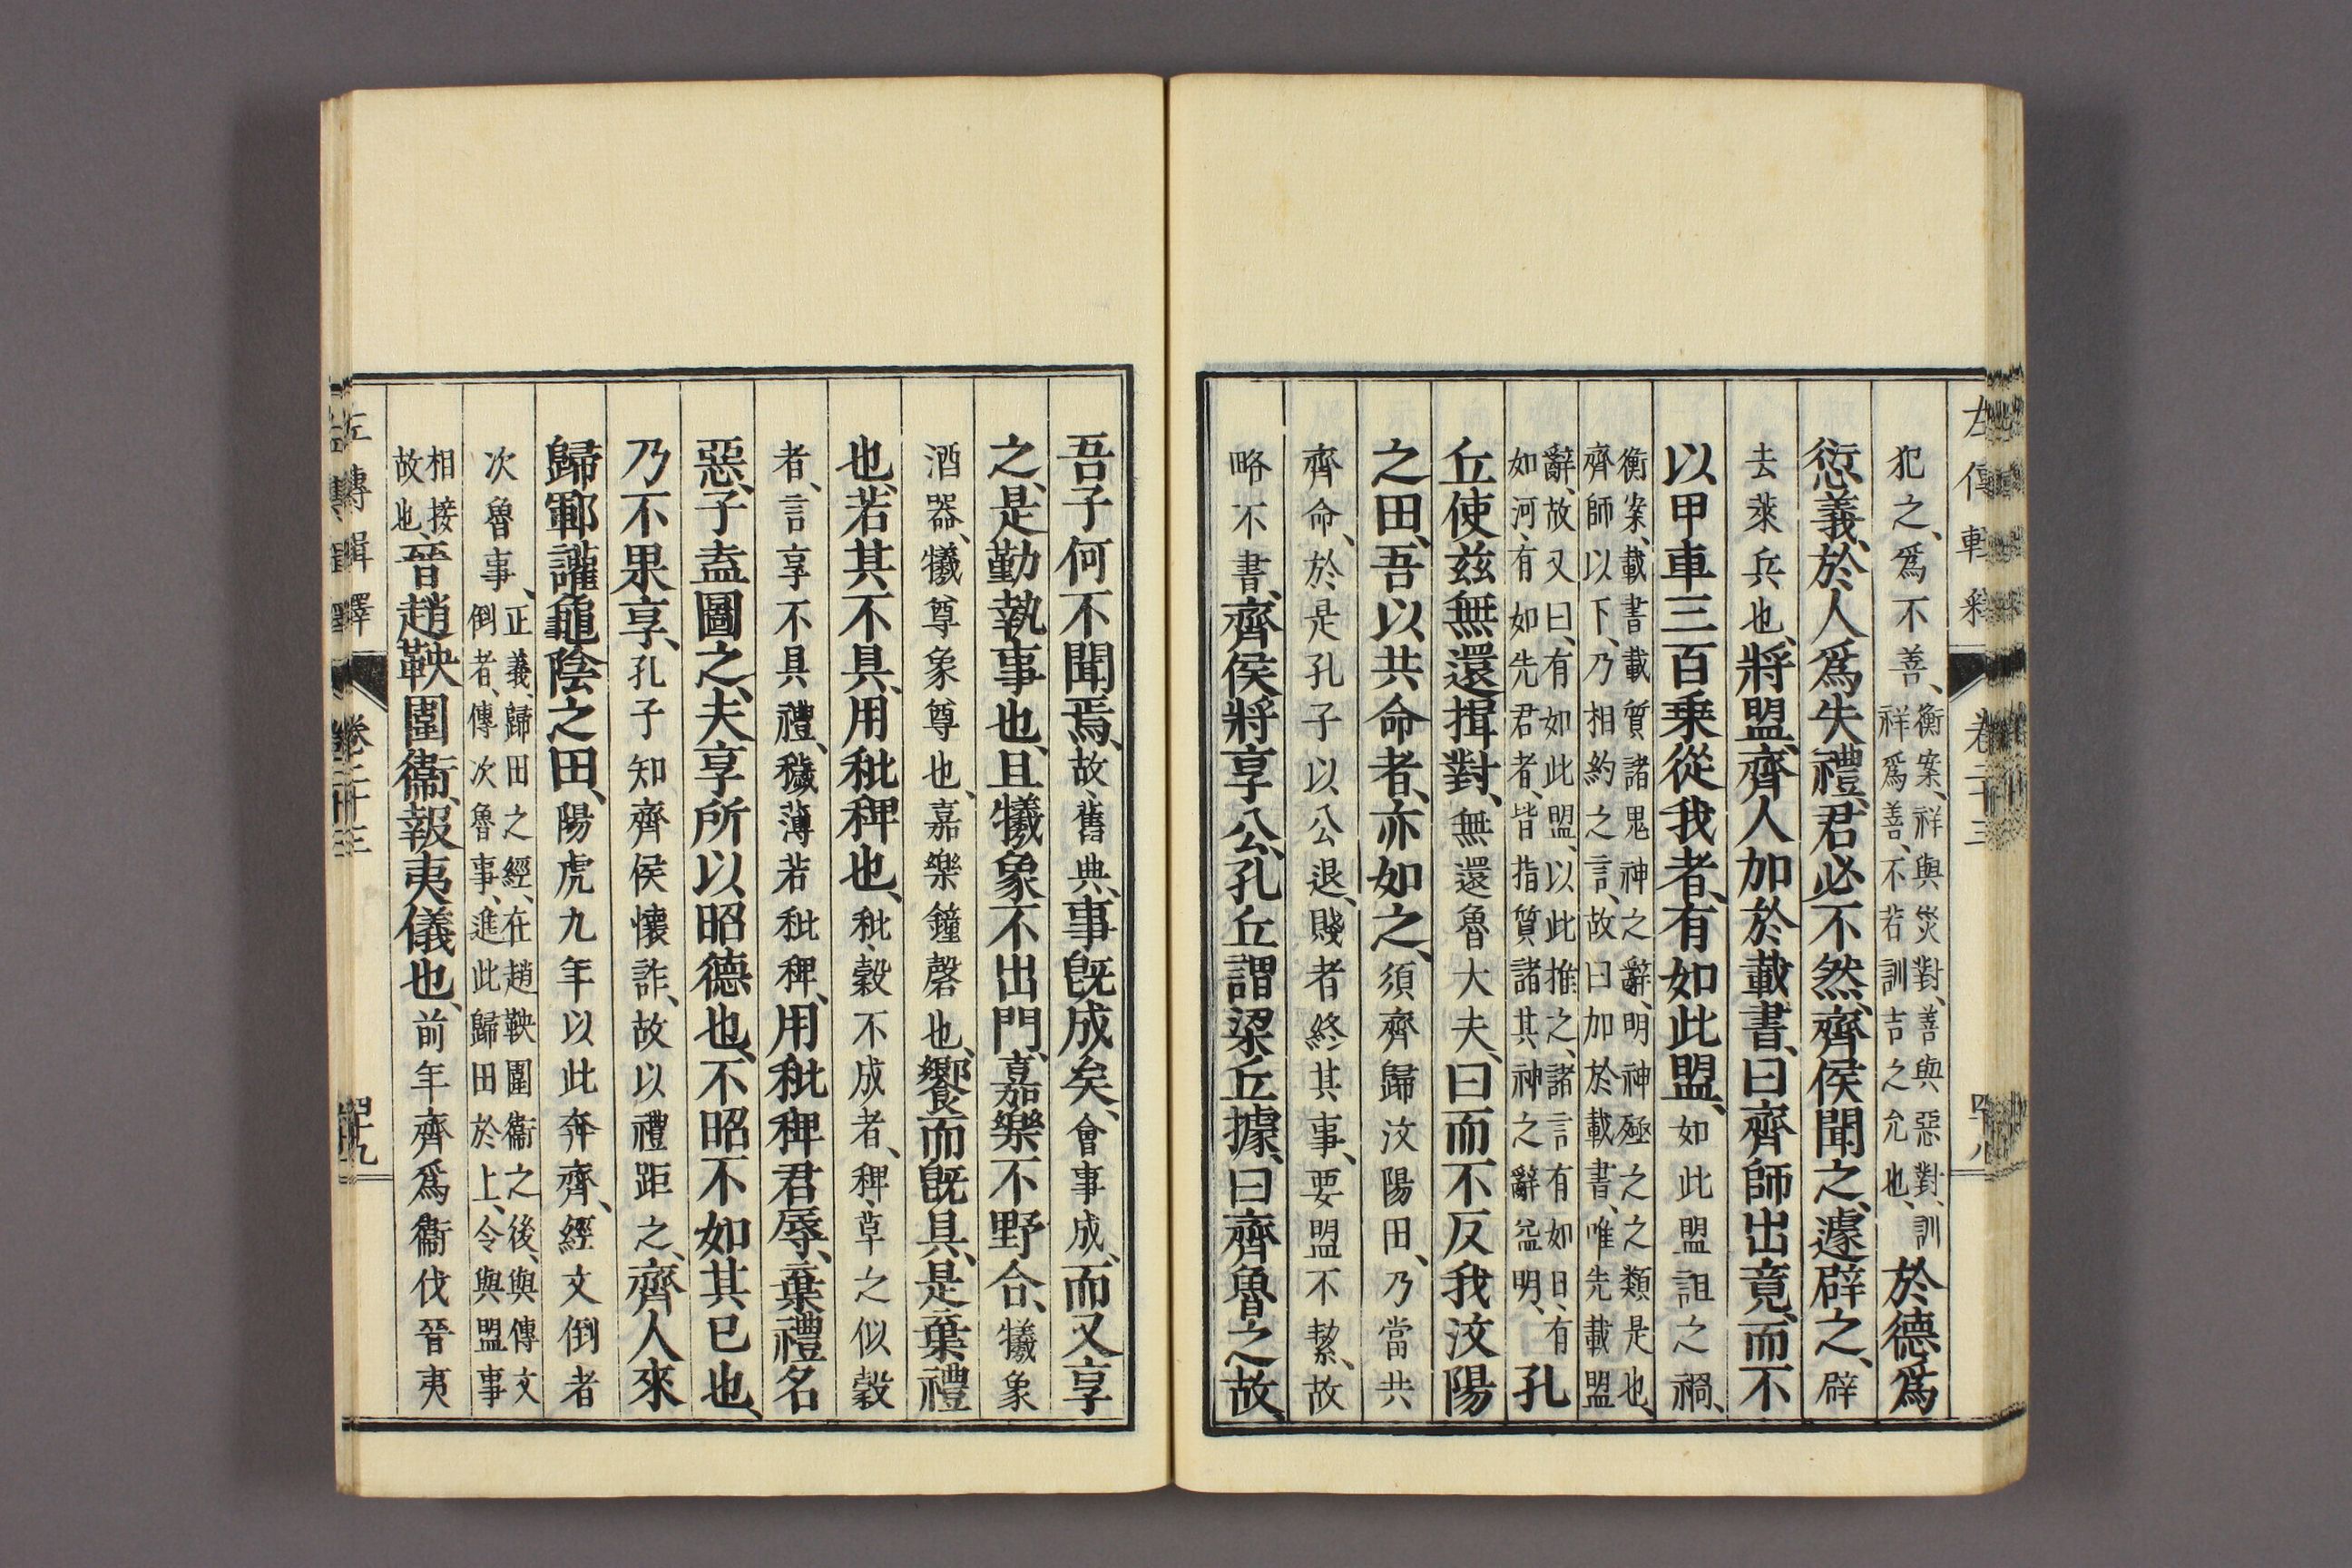 犯之、爲不善、衡案、祥與災對、善與惡對、訓祥爲善、不若訓吉之允也、於德爲
愆義、於人爲失禮、君必不然、齊侯聞之、遽辟之、辟
去萊兵也、將盟、齊人加於載書、曰齊師出竟、而不
以甲車三百乘從我者、有如此盟、如此盟詛之禍、
衡案、載書載質諸鬼神之辭、明神殛之之類是也、
齊師以下、乃相約之言、故曰加於載書、唯先載盟
辭、故又曰、有如此盟、以此推之、諸言有如日、有
如河、有如先君者、皆指質諸其神之辭益明、孔
丘使茲無還揖對、無還魯大夫、曰而不反我汶陽
之田、吾以共命者、亦如之、須齊歸汶陽田、乃當共
齊命、於是孔子以公退、賤者終其事、要盟不絜、故
略不書、齊侯將享公、孔丘謂梁丘據、曰齊魯之故、
吾子何不聞焉、故、舊典、事旣成矣、會事成、而又享
之、是勤執事也、且犧象不出門、嘉樂不野合、犧象
酒器、犧尊象尊也、嘉樂鐘磬也、饗而旣具、是棄禮
也、若其不具、用秕稗也、秕、穀不成者、稗、草之似穀
者、言享不具禮、穢薄若秕稗、用秕稗君辱、棄禮名
惡、子盍圖之、夫享所以昭德也、不昭不如其已也、
乃不果享、孔子知齊侯懷詐、故以禮距之、齊人來
歸鄆讙龜陰之田、陽虎九年以此奔齊、經文倒者
次魯事、正義、歸田之經、在趙鞅圍衞之後、與傳文倒者、傳次魯事、進此歸田於上、令與盟事
相接故也、晉趙鞅圍衞、報夷儀也、前年齊爲衞伐晉夷
左傳輯釋 卷二十三 四十九